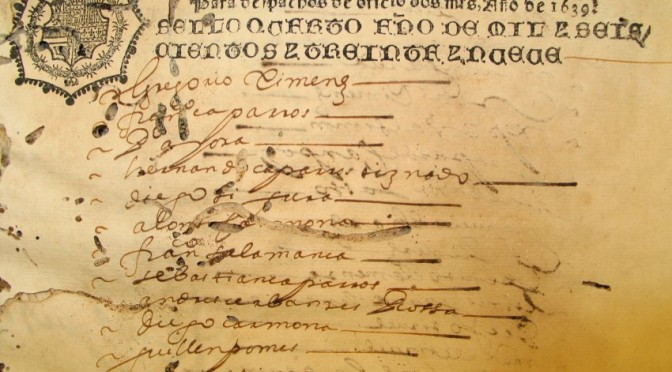 Para despachos de oficio dos mrs, Año de 1639
SELLO QVERTO EÑO DE MIL Z SEIS
CIENTOS Z TREINTE Z NVEVE
Gregorio Ximenz
franca parros
P
hernando caparros tiznado
diego
alonso carmona
fran salamanca
sebastian caparros
andres cerbantes
diego carmona
guillen gomes